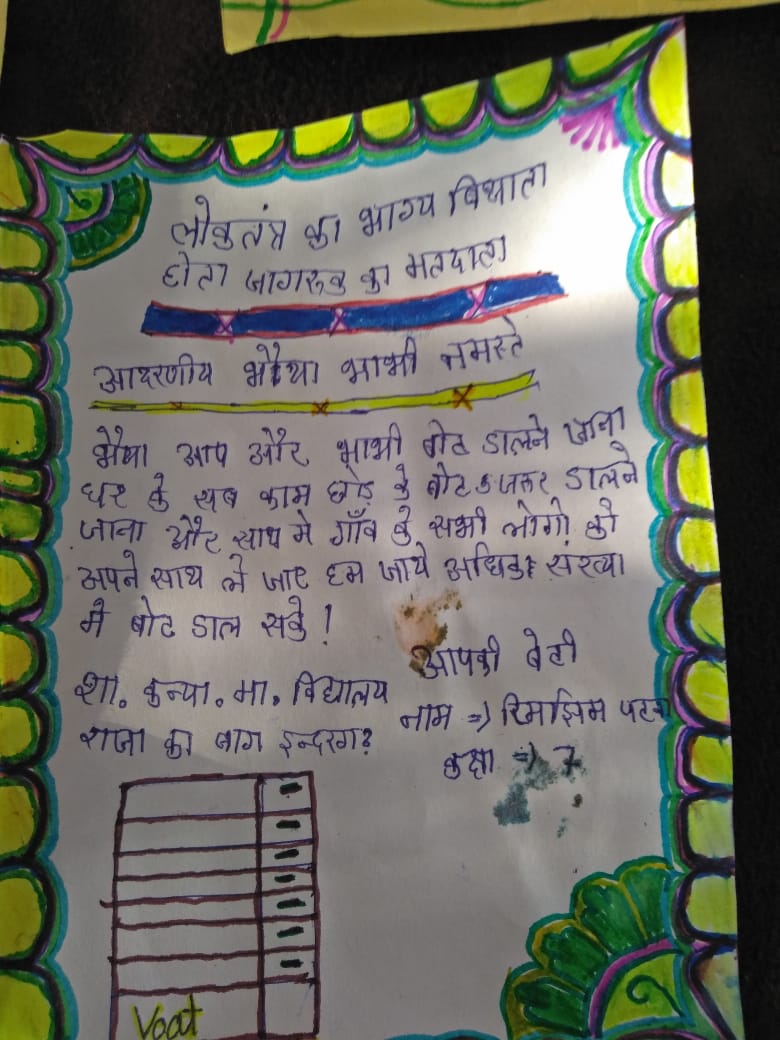 लोकतंत्र का भाग्य विधाता
होता जागरुक का मतदाता
आदरणीय भैया भाभी नमस्ते
भैया आप और भाभी वोट डालने जाना
घर के सब काम छोड़ के वोट जरूर डालने
जाना और साथ मे गाँव के सभी लोगो को
अपने साथ ले जाए हम जाये अधिक संख्या
मे वोट डाल सके!
आपकी बेटी
शा. कन्या. मा. विद्यालय
नाम => रिमझिम
राजा का बाग
कक्षा => 7
Voat